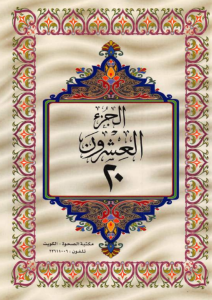 الجزء
العشرون
٢٠
مكتبة الصحوة - الكويت